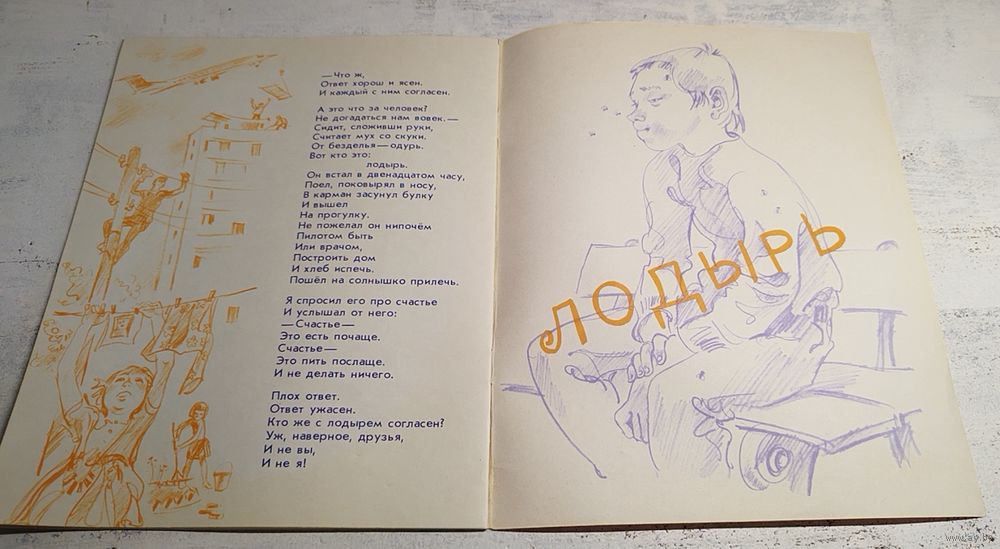 — Что ж,
Ответ хорош и ясен.
И каждый с ним согласен.
А это что за человек?
Не догадаться нам вовек.—
Сидит, сложивши руки,
Считает мух со скуки.
От безделья — одурь.
Вот кто это:
лодырь.
Он встал в двенадцатом часу,
Поел, поковырял в носу,
В карман засунул булку
И вышел
На прогулку.
Не пожелал он нипочём
Пилотом быть
Или врачом,
Построить дом
И хлеб испечь.
Пошёл на солнышко прилечь.
Я спросил его про счастье
И услышал от него:
— Счастье —
Это есть почаще.
Счастье —
Это пить послаще.
И не делать ничего.
Плох ответ.
Ответ ужасен.
Кто же с лодырем согласен?
Уж, наверное, друзья,
И не вы,
И не я!
ЛОДЫРЬ
www.ay.by